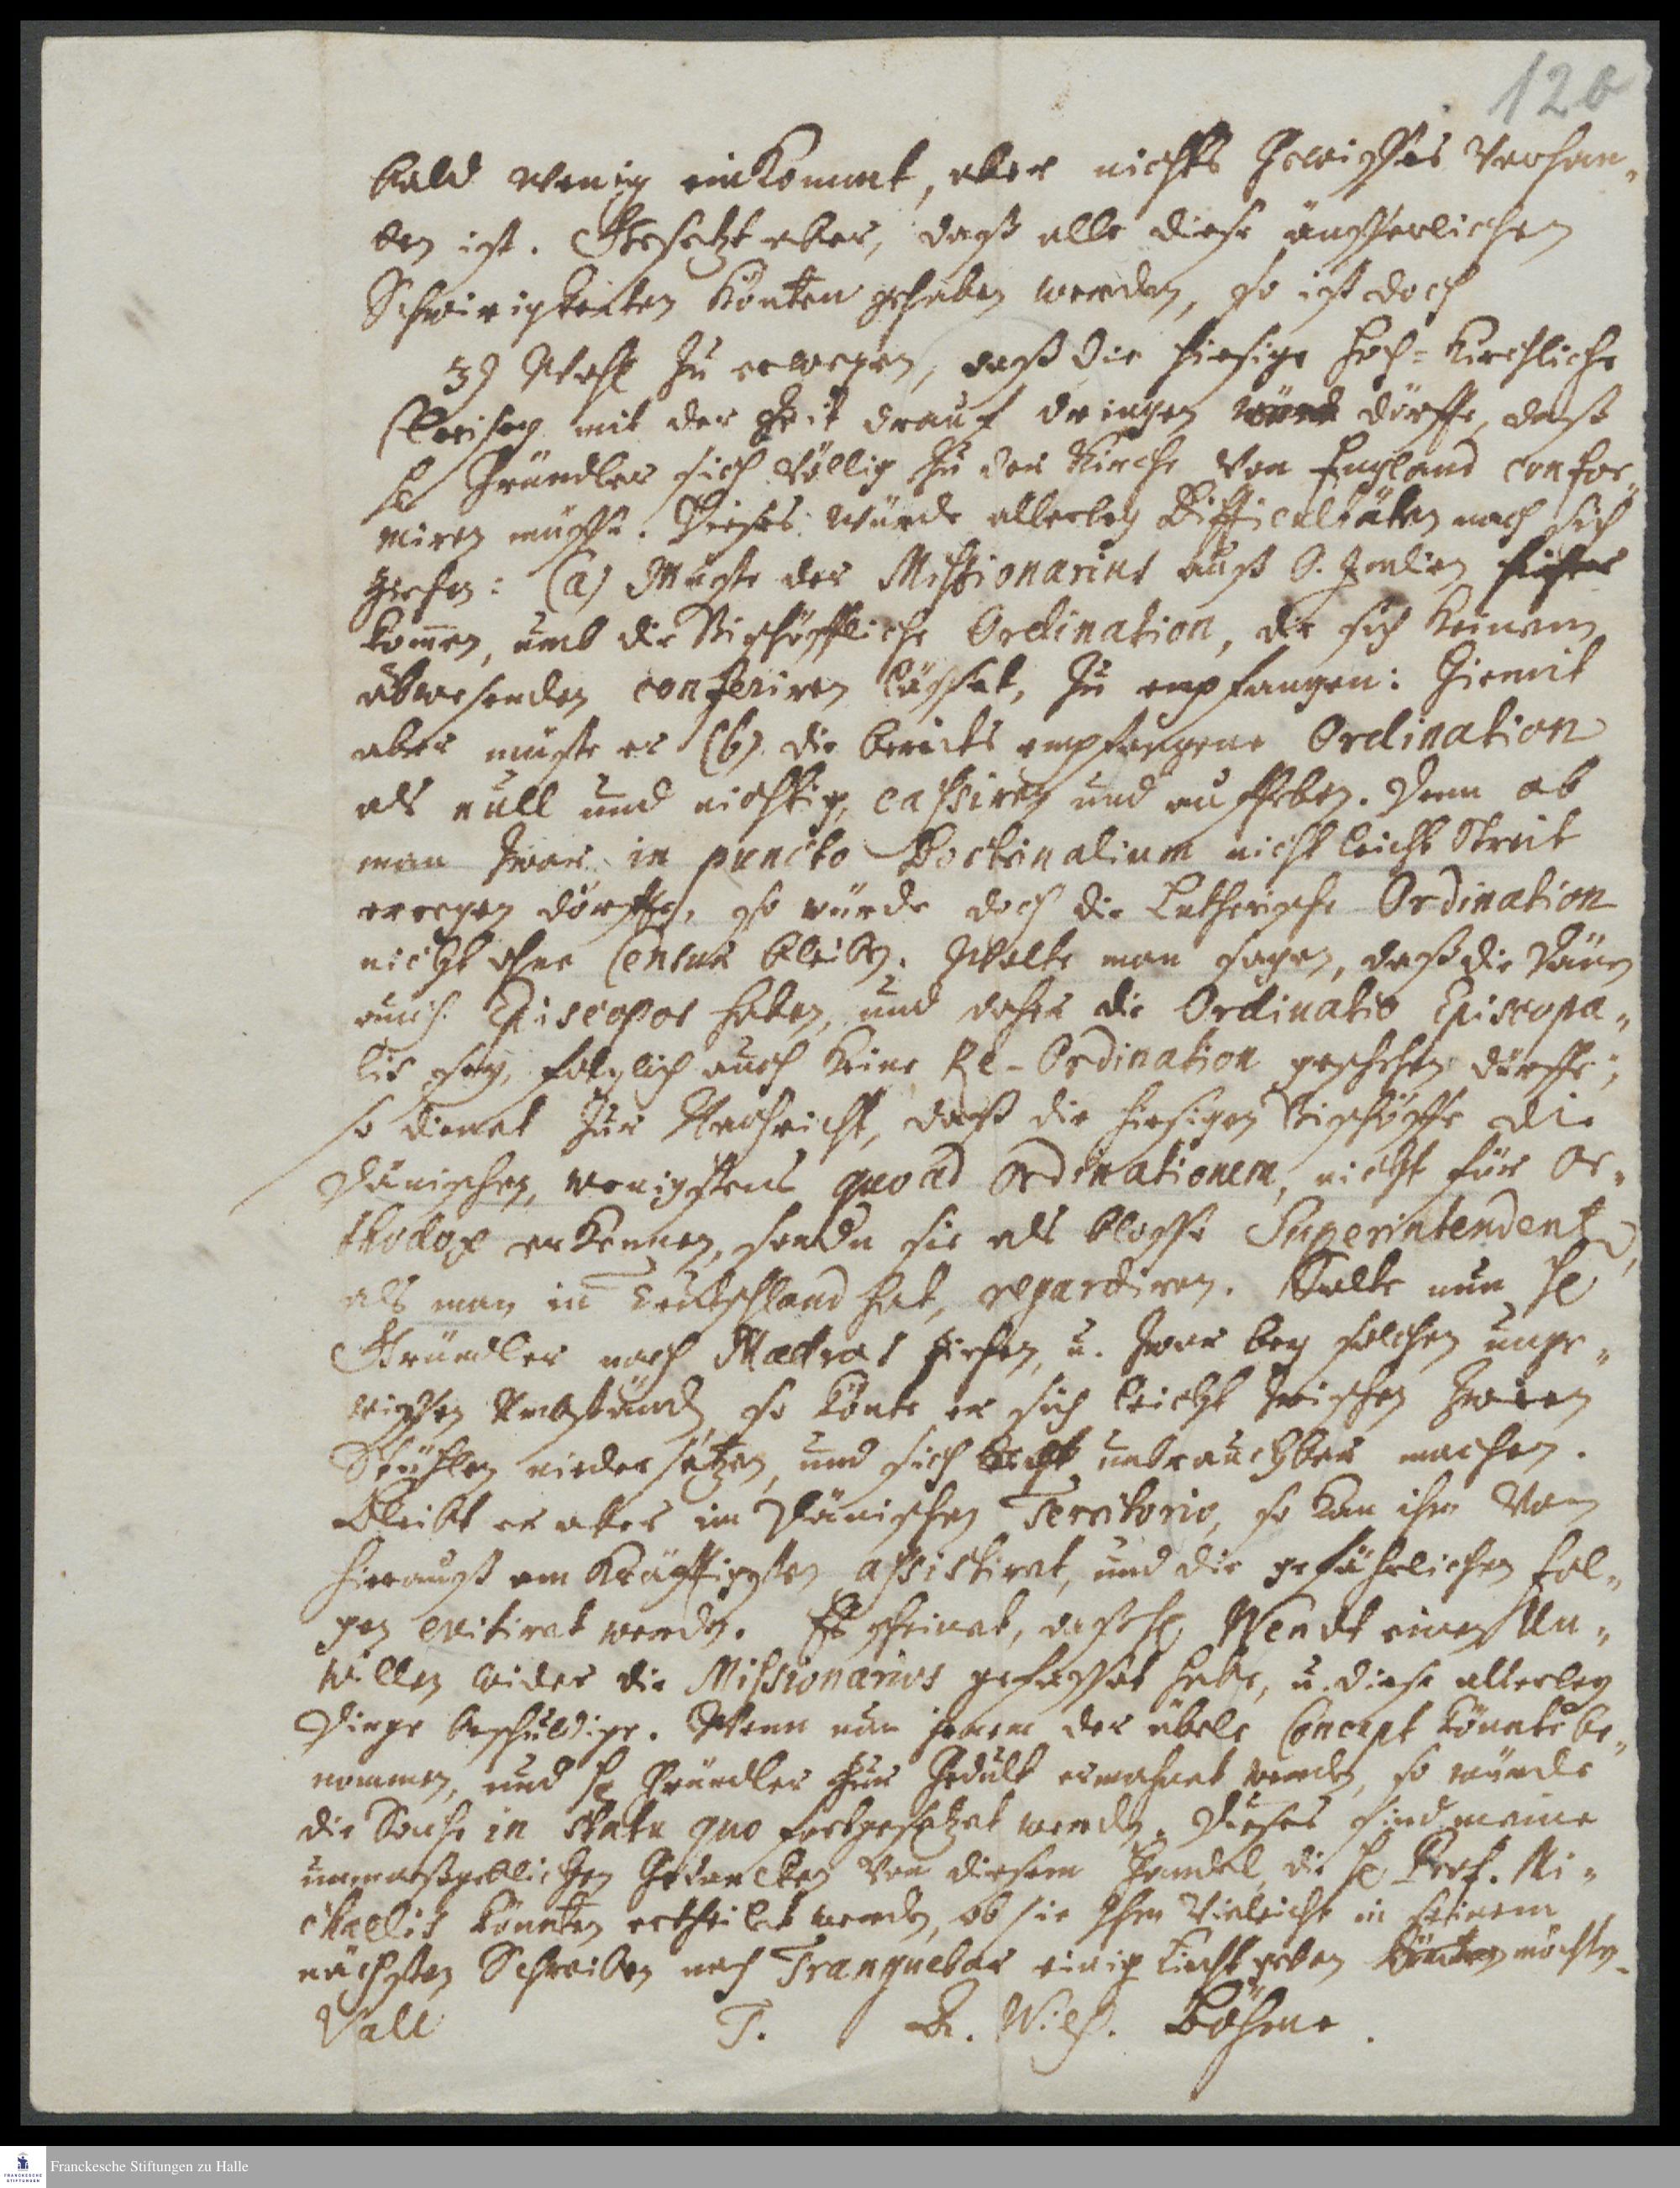 120
bald wenig einkommt, aber nichts Gewisses verhan-
den ist. Gesetzt aber, daß alle diese äusserlichen
Schwirigkeiten könten gehaben werden, so ist doch
3) Wohl zu erwegen, daß die hiesige Hoch-Kirchliche
Clerisey mit der Zeit drauf dringen dörffte, daß
H Gründler sich völlig zu der Kirche von England confor-
miren müsse. Dieses würde allerley Difficultäten nach sich
ziehen: (a) Müste der Missionarius auß O. Indien hieher
kom̄en, umb die Bischöffliche Ordination, die sich keinem
abwesenden conferiren lässet, zu empfangen: Hiemit
aber müste er (b) die bereits empfangene Ordination
als null und nichtig cassiren und auffheben. Denn ob
man zwar in puncto Doctrinalium nicht leicht Streit
erregen dörffte, so würde doch die Lutherische Ordination
nicht ohne Censur bleiben. Wolte man sagen, daß die Dänen
auch Episcopos haben, und daher die Ordinatio Episcopa-
lis sey, folglich auch keine Re-Ordination geschehen dürffe;
so dienet zur Nachricht, daß die hiesigen Bischöffe die
Dänischen, wenigstens quoad Ordinationem, nicht für Or-
thodox erkennen, sondn sie als blosse Superintendent,
als man in Teutschland hat, regardiren. Solte nun H
Gründler nach Madras ziehen, u. zwar bey solchen unge-
wissen Umbständen, so könte er sich leicht zwischen zween
Stühlen niedersetzen, und sich unbrauchbar machen.
Bleibt er aber im Dänischen Territorio, so kan ihm von
hierauß am kräfftigsten assistiret, und die gefährlichen Fol-
gen evitiret werden. Es scheinet, daß H. Wendt einen Un-
willen wider die Missionarios gefasset habe, u. diese allerley
Dinge beschuldige. Wenn nun jenem der übele Concept könnte be-
nommen, und H Gründler zur Gedult ermahnet werden, so würde
die Sache in statu quo fortgesetzet werden. Dieses sind meine
unmaßgeblichen Gedancken von diesem Handel, die H Prof. Mi-
chaelis könnten ertheilet werden, ob sie Ihm vieleicht in seinem
nächsten Schreiben nach Tranquebar einig Licht geben könten möchten.
Vale T. A. Wilh. Böhme.
Franckesche Stiftungen zu Halle